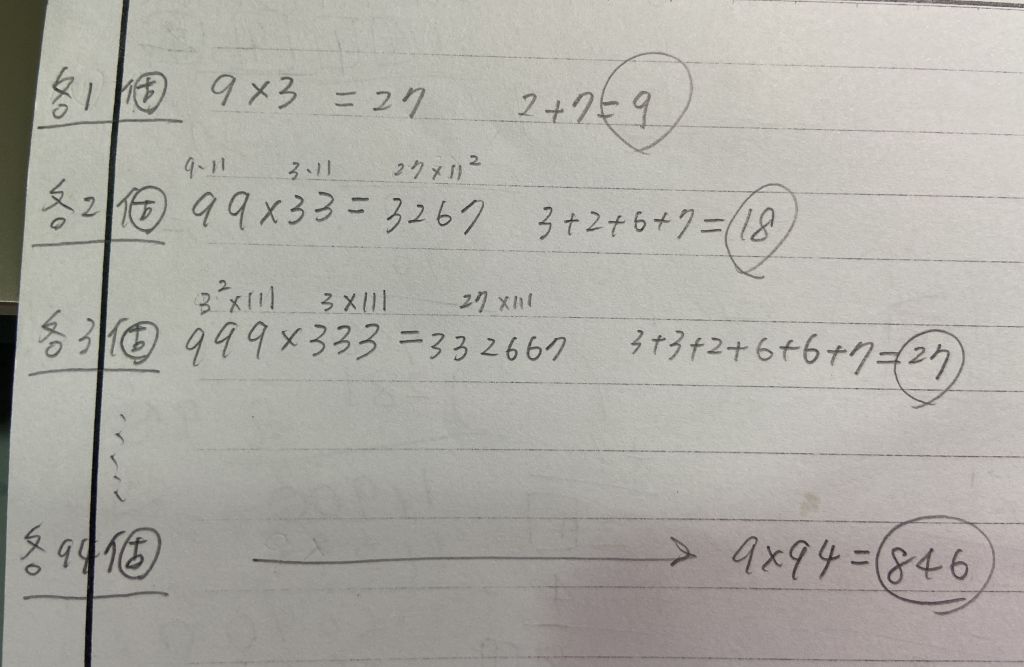 各1個 9×3 = 27 2+7=9
9·11 3·11 27×11²
各2個 99×33=3267 3+2+6+7=18
3²×111 3×111 27×111
各3個 999×333=332667 3+3+2+6+6+7=27
各94個 → 9×94=846